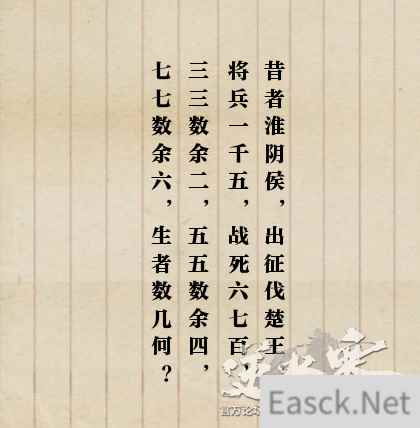 昔者淮阴侯，出征伐楚王，
将兵一千五，战死六七百，
三三数余二，五五数余四，
七七数余六，生者数几何？
逆水寒
官方论坛
Easck.Net